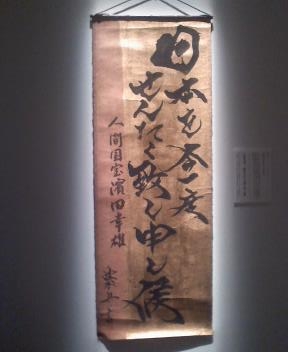 日本を今一度
せんたく致し申し候
人間国宝濱田幸雄